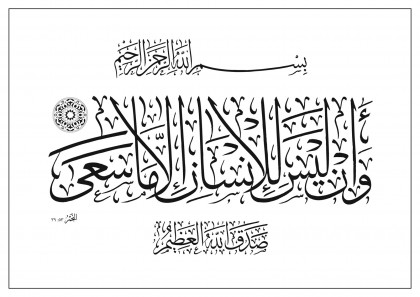 بِسْمِ اللَّهِ الرَّحْمَنِ الرَّحِيمِ
وَأَن لَّيْسَ لِلْإِنسَانِ إِلَّا مَا سَعَى
صَدَقَ اللَّهُ الْعَظِيمُ